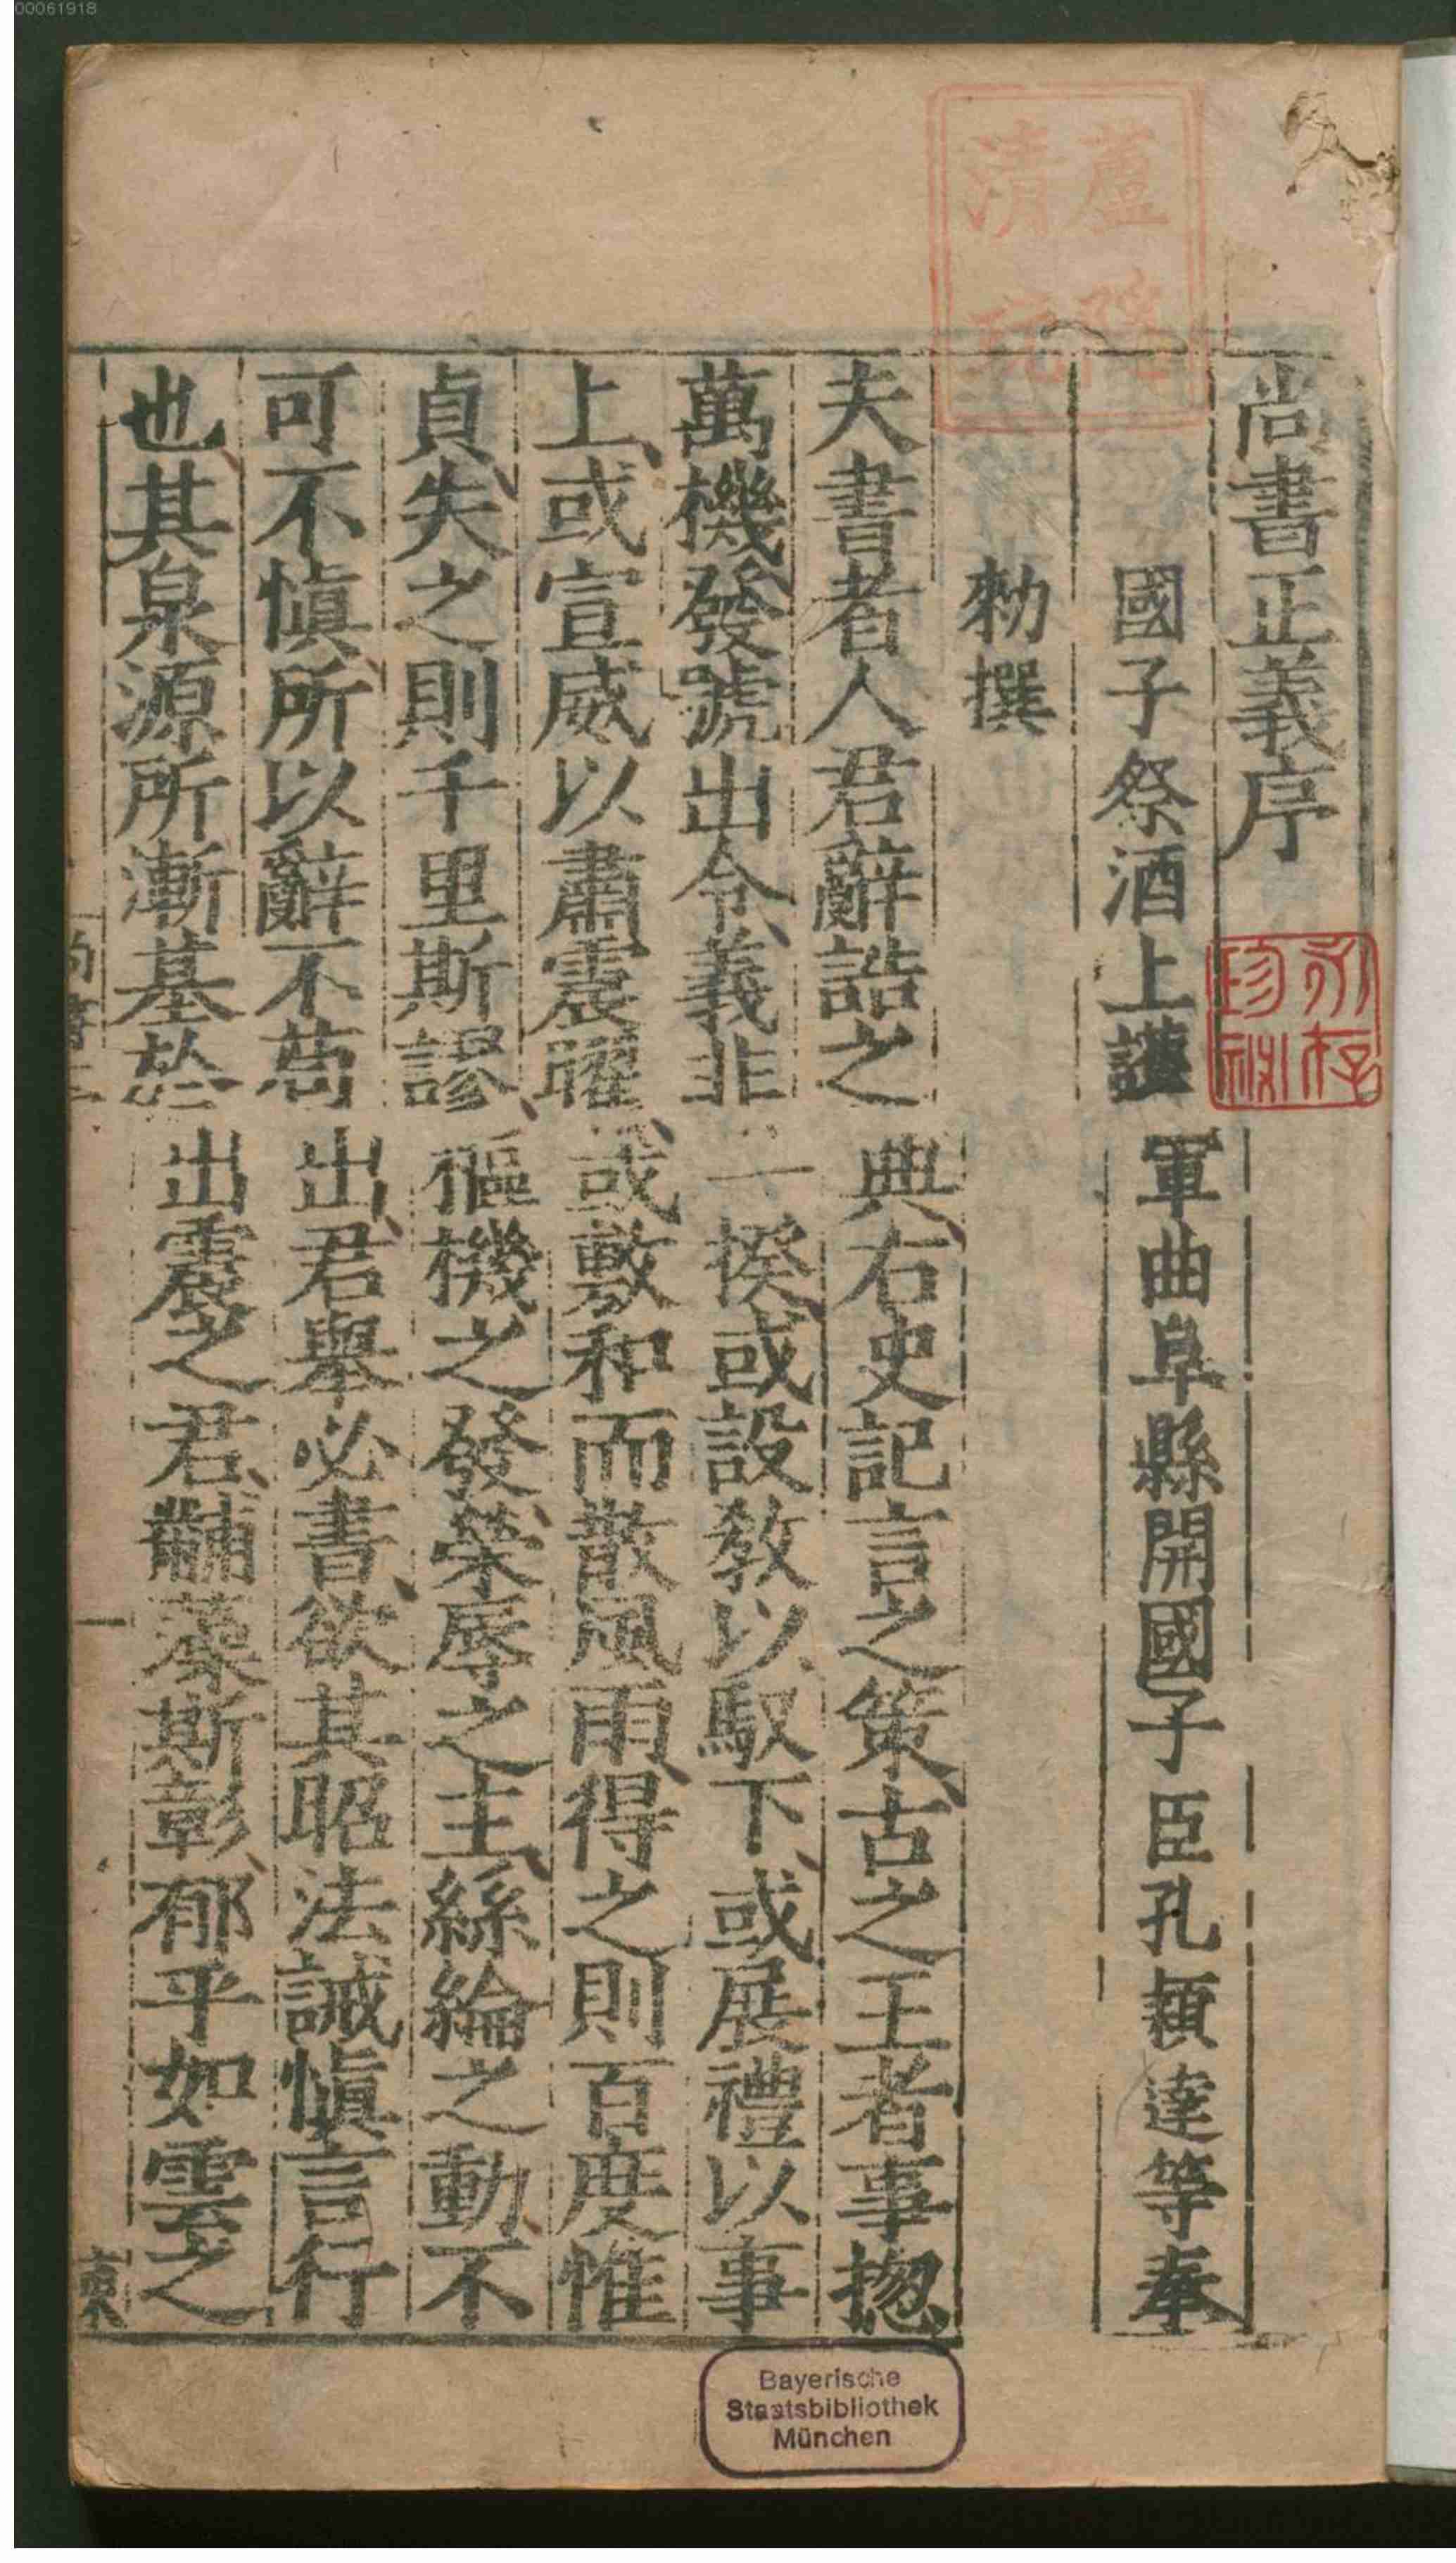 00061918
蘆
清
尚書正義序
國子祭酒上護軍曲阜縣開國子臣孔穎達等奉
勑撰
夫書者人君辭誥之典、右史記言之策、古之王者事揔
萬機發號出令、義非一揆、或設敎以馭下、或展禮以事
上、或宣威以肅震曜、或敷和而散風雨、得之則百度惟
貞、失之則千里斯謬、樞機之發、榮辱之主、絲綸之動、不
可不愼、所以辭不苟出、君舉必書、欲其昭法誡愼言行
也、其泉源所漸基於出震之君、黼藻斯彰、郁乎如雲之
Bayerische
Staatsbibliothek
München